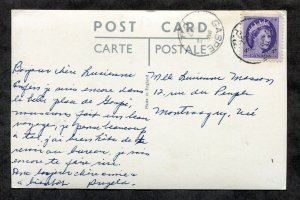 POST CARD
CARTE POSTALE
GASPE
Bonjour chère Lucienne
je suis encore dans
la belle place de Gaspé,
nous avons fait un beau
voyage, je pense beaucoup
à toi, j'ai bien hâte de te
revoir au bureau, je suis
encore te faire rire.
bonjour chère amie &
à bientôt Angela
Mlle Lucienne Masson
12 rue du Peuple
Montmagny, Qué